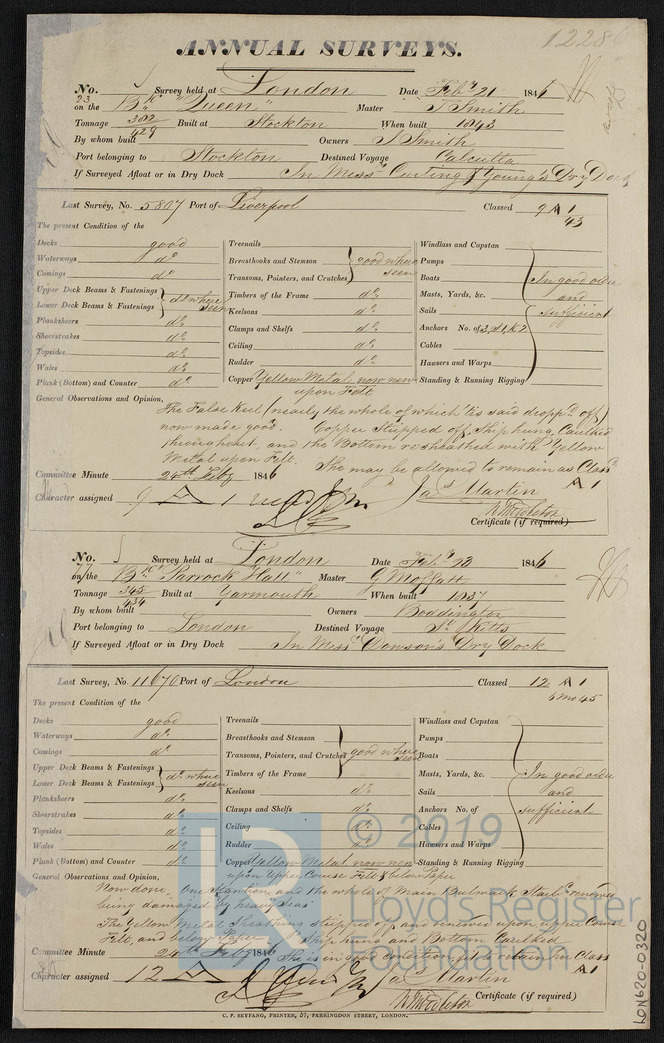 1228
ANNUAL SURVEYS.
No. 23 Survey held at London Date Feby 21 1846
on the Bk "Queen" Master T Smith
Tonnage 382/429 Built at Stockton When built 1843
By whom built Owners J Smith
Port belonging to Stockton Destined Voyage Calcutta
If Surveyed Afloat or in Dry Dock In Messrs Curling & Young's Dry Dock
Last Survey, No. 5807 Port of Liverpool Classed 9 A 1
43
The present Condition of the
Decks good
Waterways do
Comings do
Upper Deck Beams & Fastenings
Lower Deck Beams & Fastenings do where seen
Planksheers do
Sheerstrakes do
Topsides do
Wales do
Plank (Bottom) and Counter do
Treenails
Breasthooks and Stemson
Transoms, Pointers, and Crutches good where seen
Timbers of the Frame do
Keelsons do
Clamps and Shelfs do
Ceiling do
Rudder do
Copper Yellow Metal now new upon Felt
Windlass and Capstan
Pumps
Boats
Masts, Yards, &c.
Sails
Anchors No. of
Cables
Hawsers and Warps
Standing & Running Rigging
In good order and sufficient
General Observations and Opinion,
The False Keel (nearly the whole of which tis said dropp'd off)
now made good. Copper stripped off, Ship hung, Caulked
throughout, and the Bottom resheathed with Yellow
Metal upon Felt. She may be allowed to remain as Class'd
A 1
Committee Minute 24th Feby 1846
Character assigned 9 A 1
Jas Martin
Certificate (if required)
No. 77 Survey held at London Date Feby 23 1846
on the Bk "Parrock Hall" Master G Moffatt
Tonnage 345/434 Built at Yarmouth When built 1837
By whom built Owners Boddington
Port belonging to London Destined Voyage St Kitts
If Surveyed Afloat or in Dry Dock In Messrs Dowson's Dry Dock
Last Survey, No. 11670 Port of London Classed 12 A 1
6 mo 45
The present Condition of the
Decks good
Waterways do
Comings do
Upper Deck Beams & Fastenings
Lower Deck Beams & Fastenings do where seen
Planksheers do
Sheerstrakes do
Topsides do
Wales do
Plank (Bottom) and Counter do
Treenails
Breasthooks and Stemson
Transoms, Pointers, and Crutches good where seen
Timbers of the Frame
Keelsons do
Clamps and Shelfs do
Ceiling do
Rudder do
Copper Yellow Metal now new
upon Upper Course Felt & below Paper
Windlass and Capstan
Pumps
Boats
Masts, Yards, &c.
Sails
Anchors No. of
Cables
Hawsers and Warps
Standing & Running Rigging
In good order and sufficient
General Observations and Opinion,
Now done, One Stantion, and the whole of Main Bulwark Starbd renewed
being damaged by heavy Seas
The Yellow Metal Sheathing stripped off and renewed upon Upper Course
Felt, and below Paper. Ship hung and Bottom Caulked
She is in good condition fit to retain her Class
A 1
Committee Minute 24th Feby 1846
Character assigned 12 A 1
Jas Martin
Certificate (if required)
C. F. SEYFANG, PRINTER, 57, FARRINGDON STREET, LONDON.
© 2019
Lloyd's Register
Foundation
LR
LON620-0320